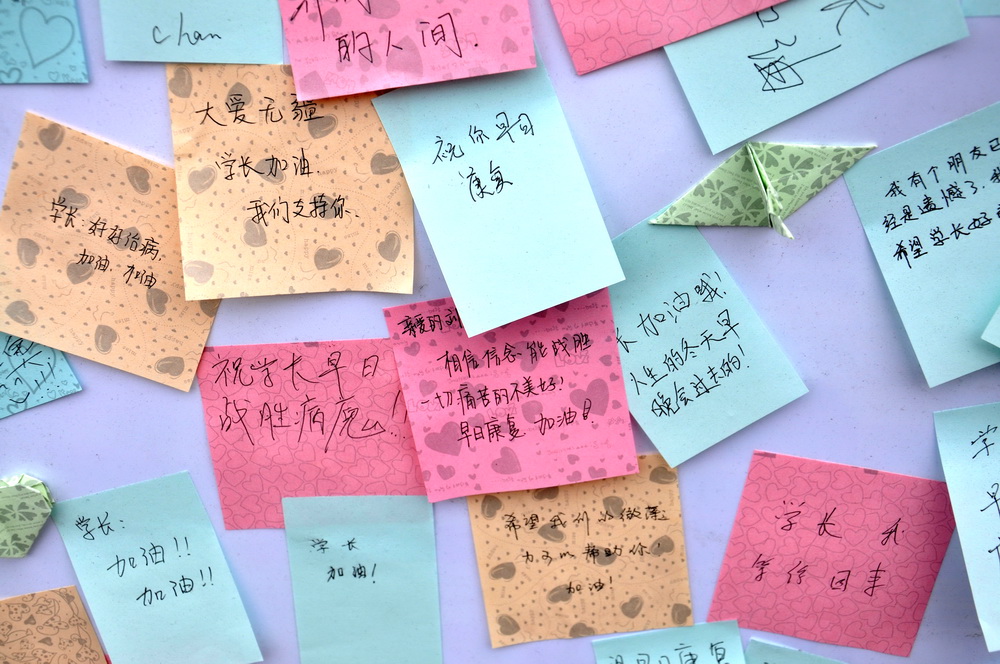 chan
的人间.
大爱无疆
学长加油.
我们支持你.
祝你早日
康复
我有个朋友已
经是遗憾了.我
希望学长好
学长:好好治病,
加油.加油
长加油哦!
人生的冬天早
晚会过去的!
亲爱的刘
相信信念能战胜
一切痛苦的不美好!
早日康复 加油!
祝学长早日
战胜病魔!
学长:
加油!!
加油!!
学长
加油!
希望我们的微薄
力可以帮助你!
加油!
学长
学
早
早日康复